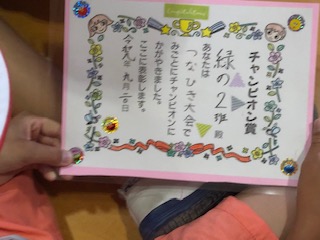 チャンピオン賞
緑の2班 殿
あなたは
つなひき大会で
みごとにチャンピオンに
かがやきました。
ここに表彰します。